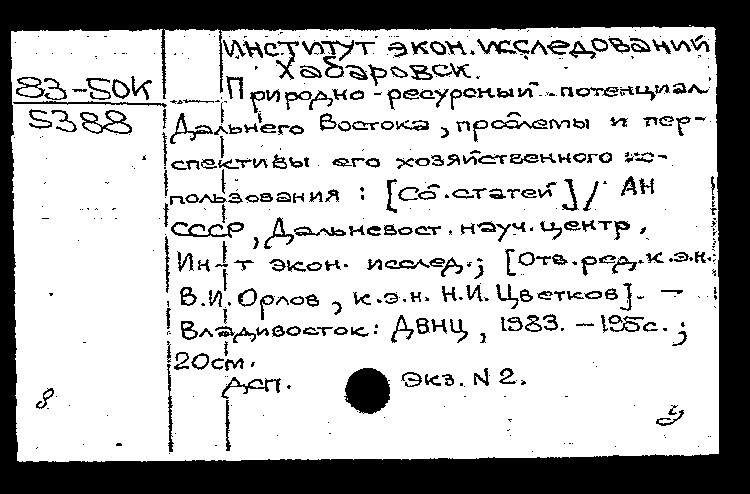 Институт экон. исследований
Хабаровск.
83-50К
5388
Природно-ресурсный потенциал
Дальнего Востока, проблемы и пер-
спективы его хозяйственного ис-
пользования : [Сб. статей] / АН
СССР, Дальневост. науч. центр,
Ин-т экон. исслед.; [Отв. ред. к.э.н.
В.И. Орлов, к.э.н. Н.И. Цветков]. —
Владивосток: ДВНЦ, 1983. - 195с. ;
20см.
ДСП. Экз. N 2.
8